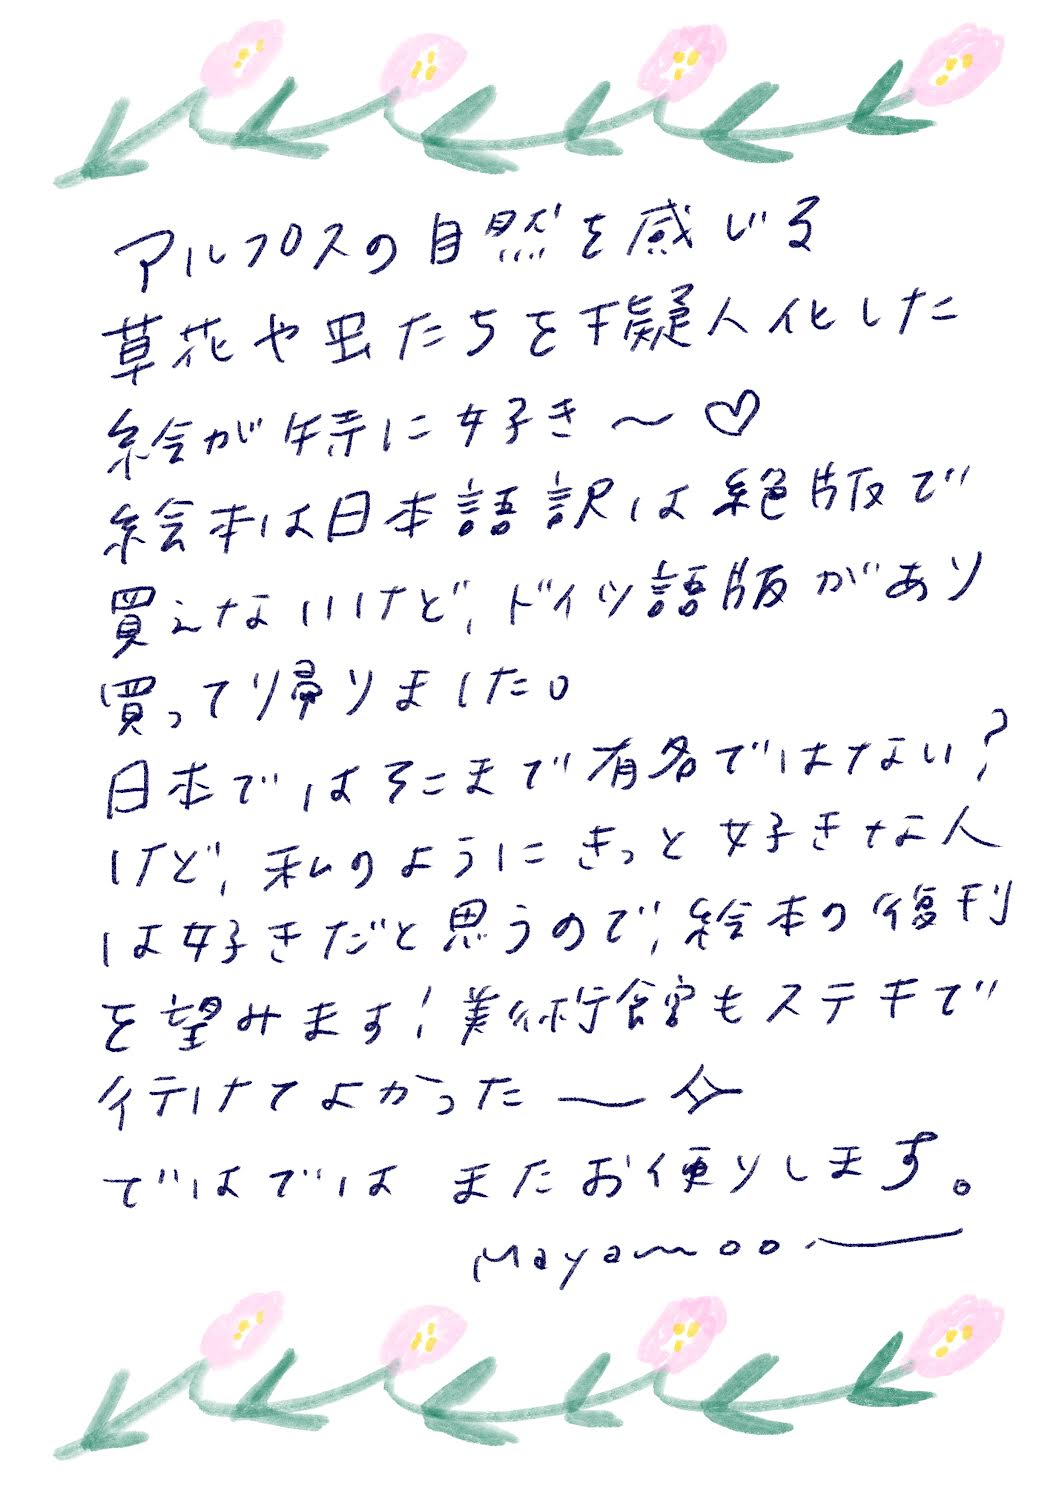 アルプスの自然を感じる
草花や虫たちを擬人化した
絵が特に好き〜♡
絵本は日本語訳は絶版で
買えないけど、ドイツ語版があり
買って帰りました。
日本ではそこまで有名ではない？
けど、私のようにきっと好きな人
は好きだと思うので、絵本の復刊
を望みます！美術館もステキで
行けてよかった〜
ではでは またお便りします。
Mayamoo.